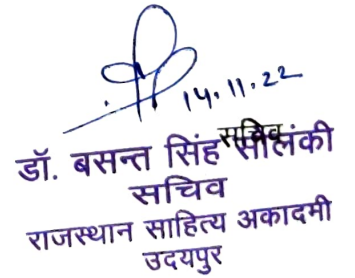 14.11.22
सचिव
डॉ. बसन्त सिंह सोलंकी
सचिव
राजस्थान साहित्य अकादमी
उदयपुर